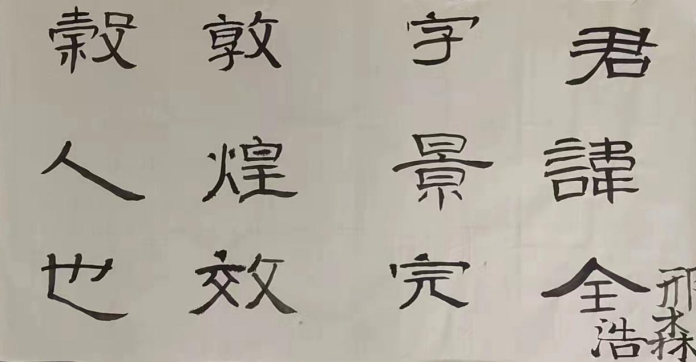 君諱全
字景完
敦煌效
穀人也
邢森浩